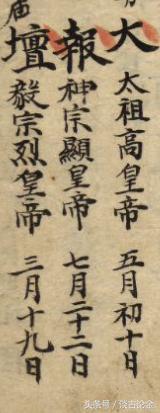 大報壇
太祖高皇帝 五月初十日
神宗顯皇帝 七月二十二日
毅宗烈皇帝 三月十九日
头条号 / 谈古论金